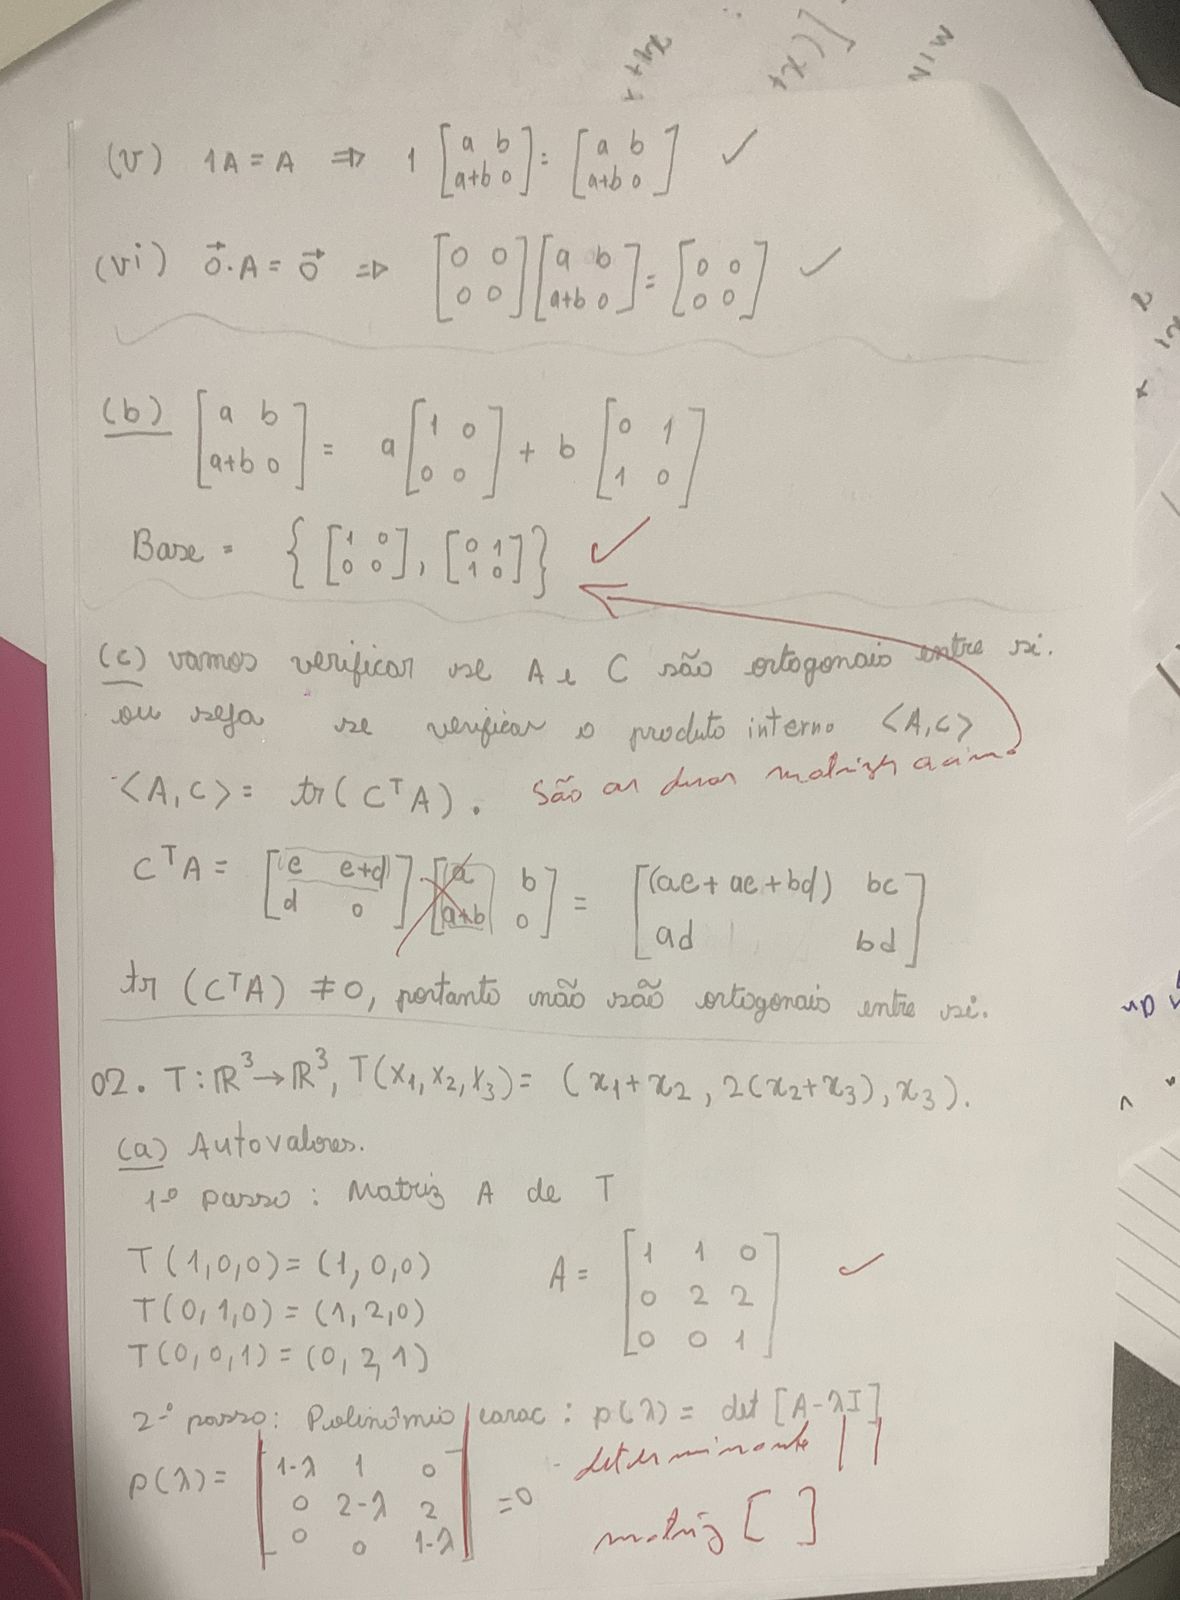 x1+
[(x+
MIN
(v) 1A = A ⇒ 1 [a b; a+b 0] = [a b; a+b 0] ✓
(vi) 0⃗.A = 0⃗ ⇒ [0 0; 0 0][a b; a+b 0] = [0 0; 0 0] ✓
(b) [a b; a+b 0] = a [1 0; 0 0] + b [0 1; 1 0]
Base = { [1 0; 0 0], [0 1; 1 0] } ✓
(c) vamos verificar se A e C são ortogonais entre si.
ou seja se verificar o produto interno <A,C>
<A,C> = tr(CᵀA). São as duas matrizes acima
CᵀA = [e e+d; d 0].[a b; a+b 0] = [(ae+ae+bd) bc; ad bd]
tr (CᵀA) ≠ 0, portanto não são ortogonais entre si.
02. T: ℝ³→ℝ³, T(x₁,x₂,x₃) = (x₁+x₂, 2(x₂+x₃), x₃).
(a) Autovalores.
1º passo: Matriz A de T
T(1,0,0) = (1,0,0)
T(0,1,0) = (1,2,0)
T(0,0,1) = (0,2,1)
A = [1 1 0; 0 2 2; 0 0 1] ✓
2º passo: Polinômio carac: p(λ) = det [A-λI]
p(λ) = |1-λ 1 0; 0 2-λ 2; 0 0 1-λ| = 0
determinante | |
matriz [ ]